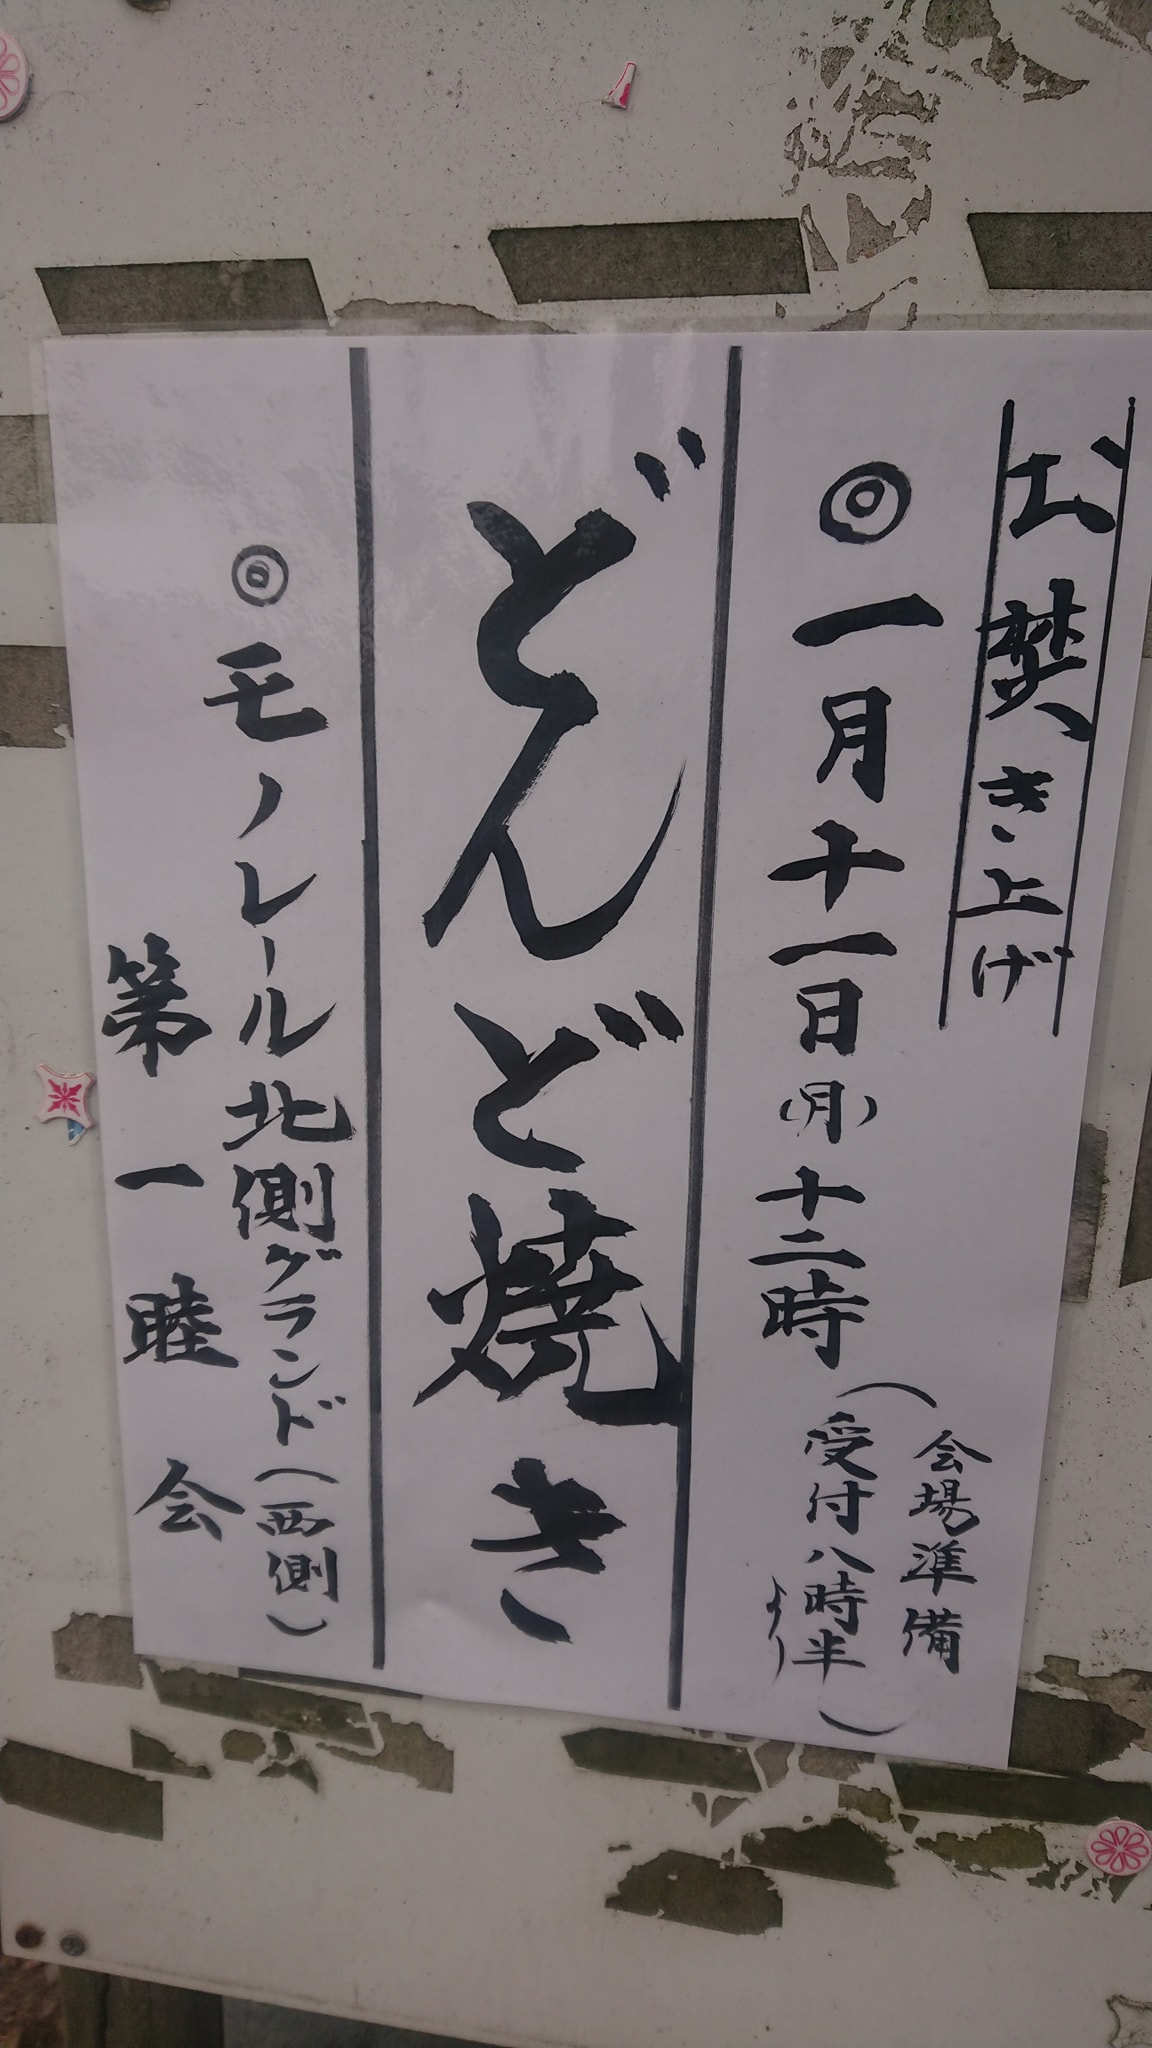 お焚き上げ
◎一月十一日(月)十二時
(会場準備
受付八時半
より)
どんど焼き
◎モノレール北側グランド(西側)
第一睦会